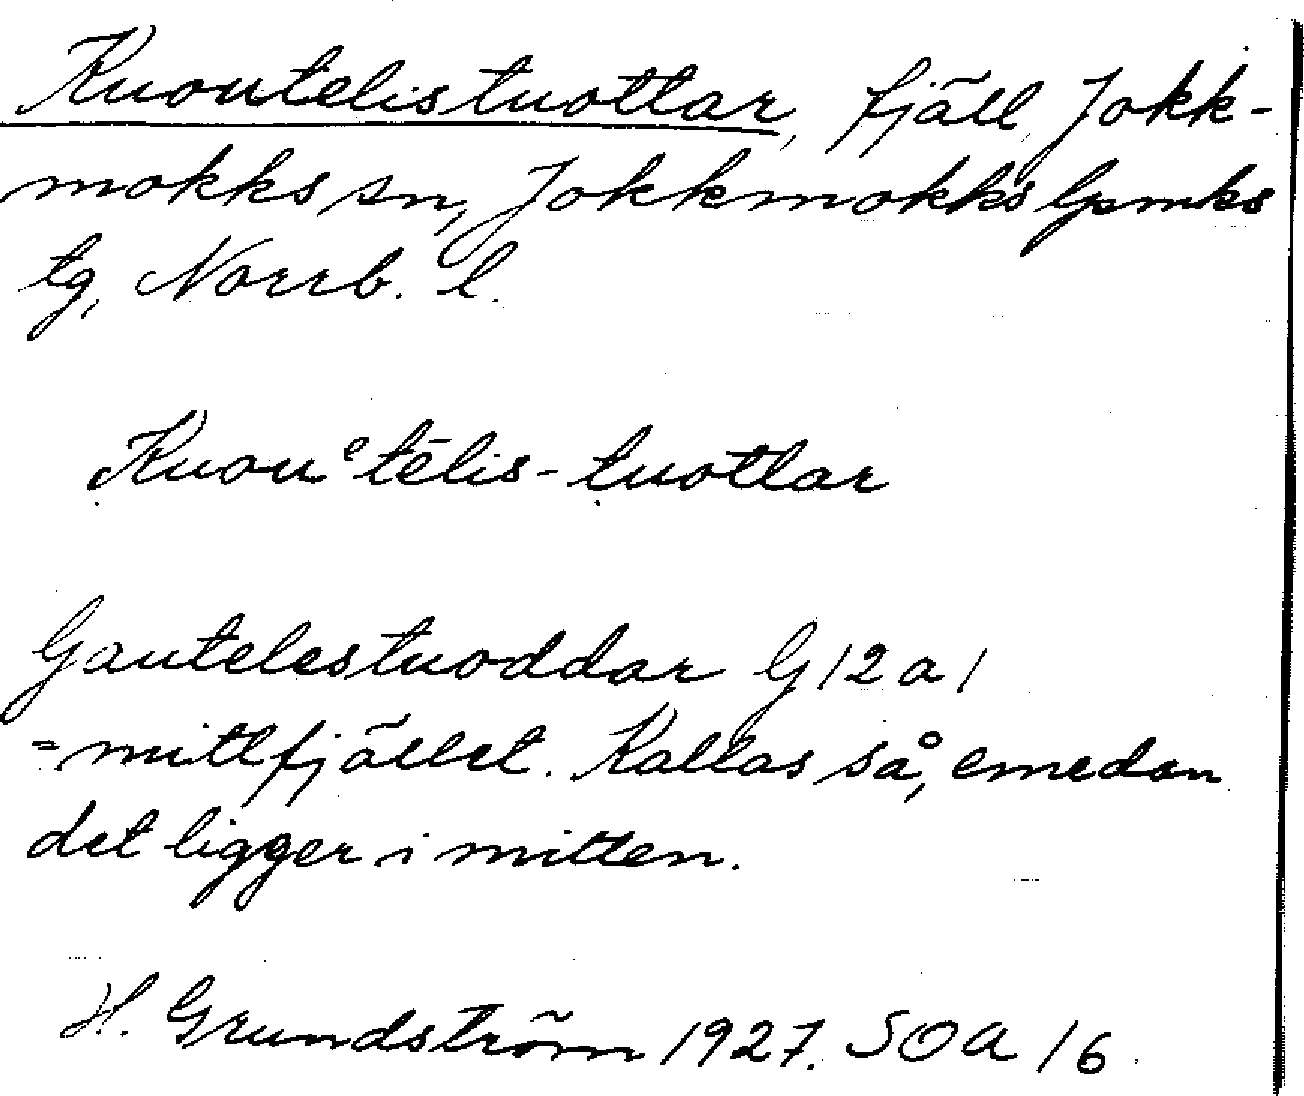 Kuoutelistuottar, fjäll, Jokk-
mokks sn, Jokkmokks lpmks
tg, Norrb. l.
Ḳuouᵉtēlis-ṭuottar
Gautelestuoddar G 12 a 1
=mittfjället. Kallas så, emedan
det ligger i mitten.
H. Grundström 1927. SOA 16